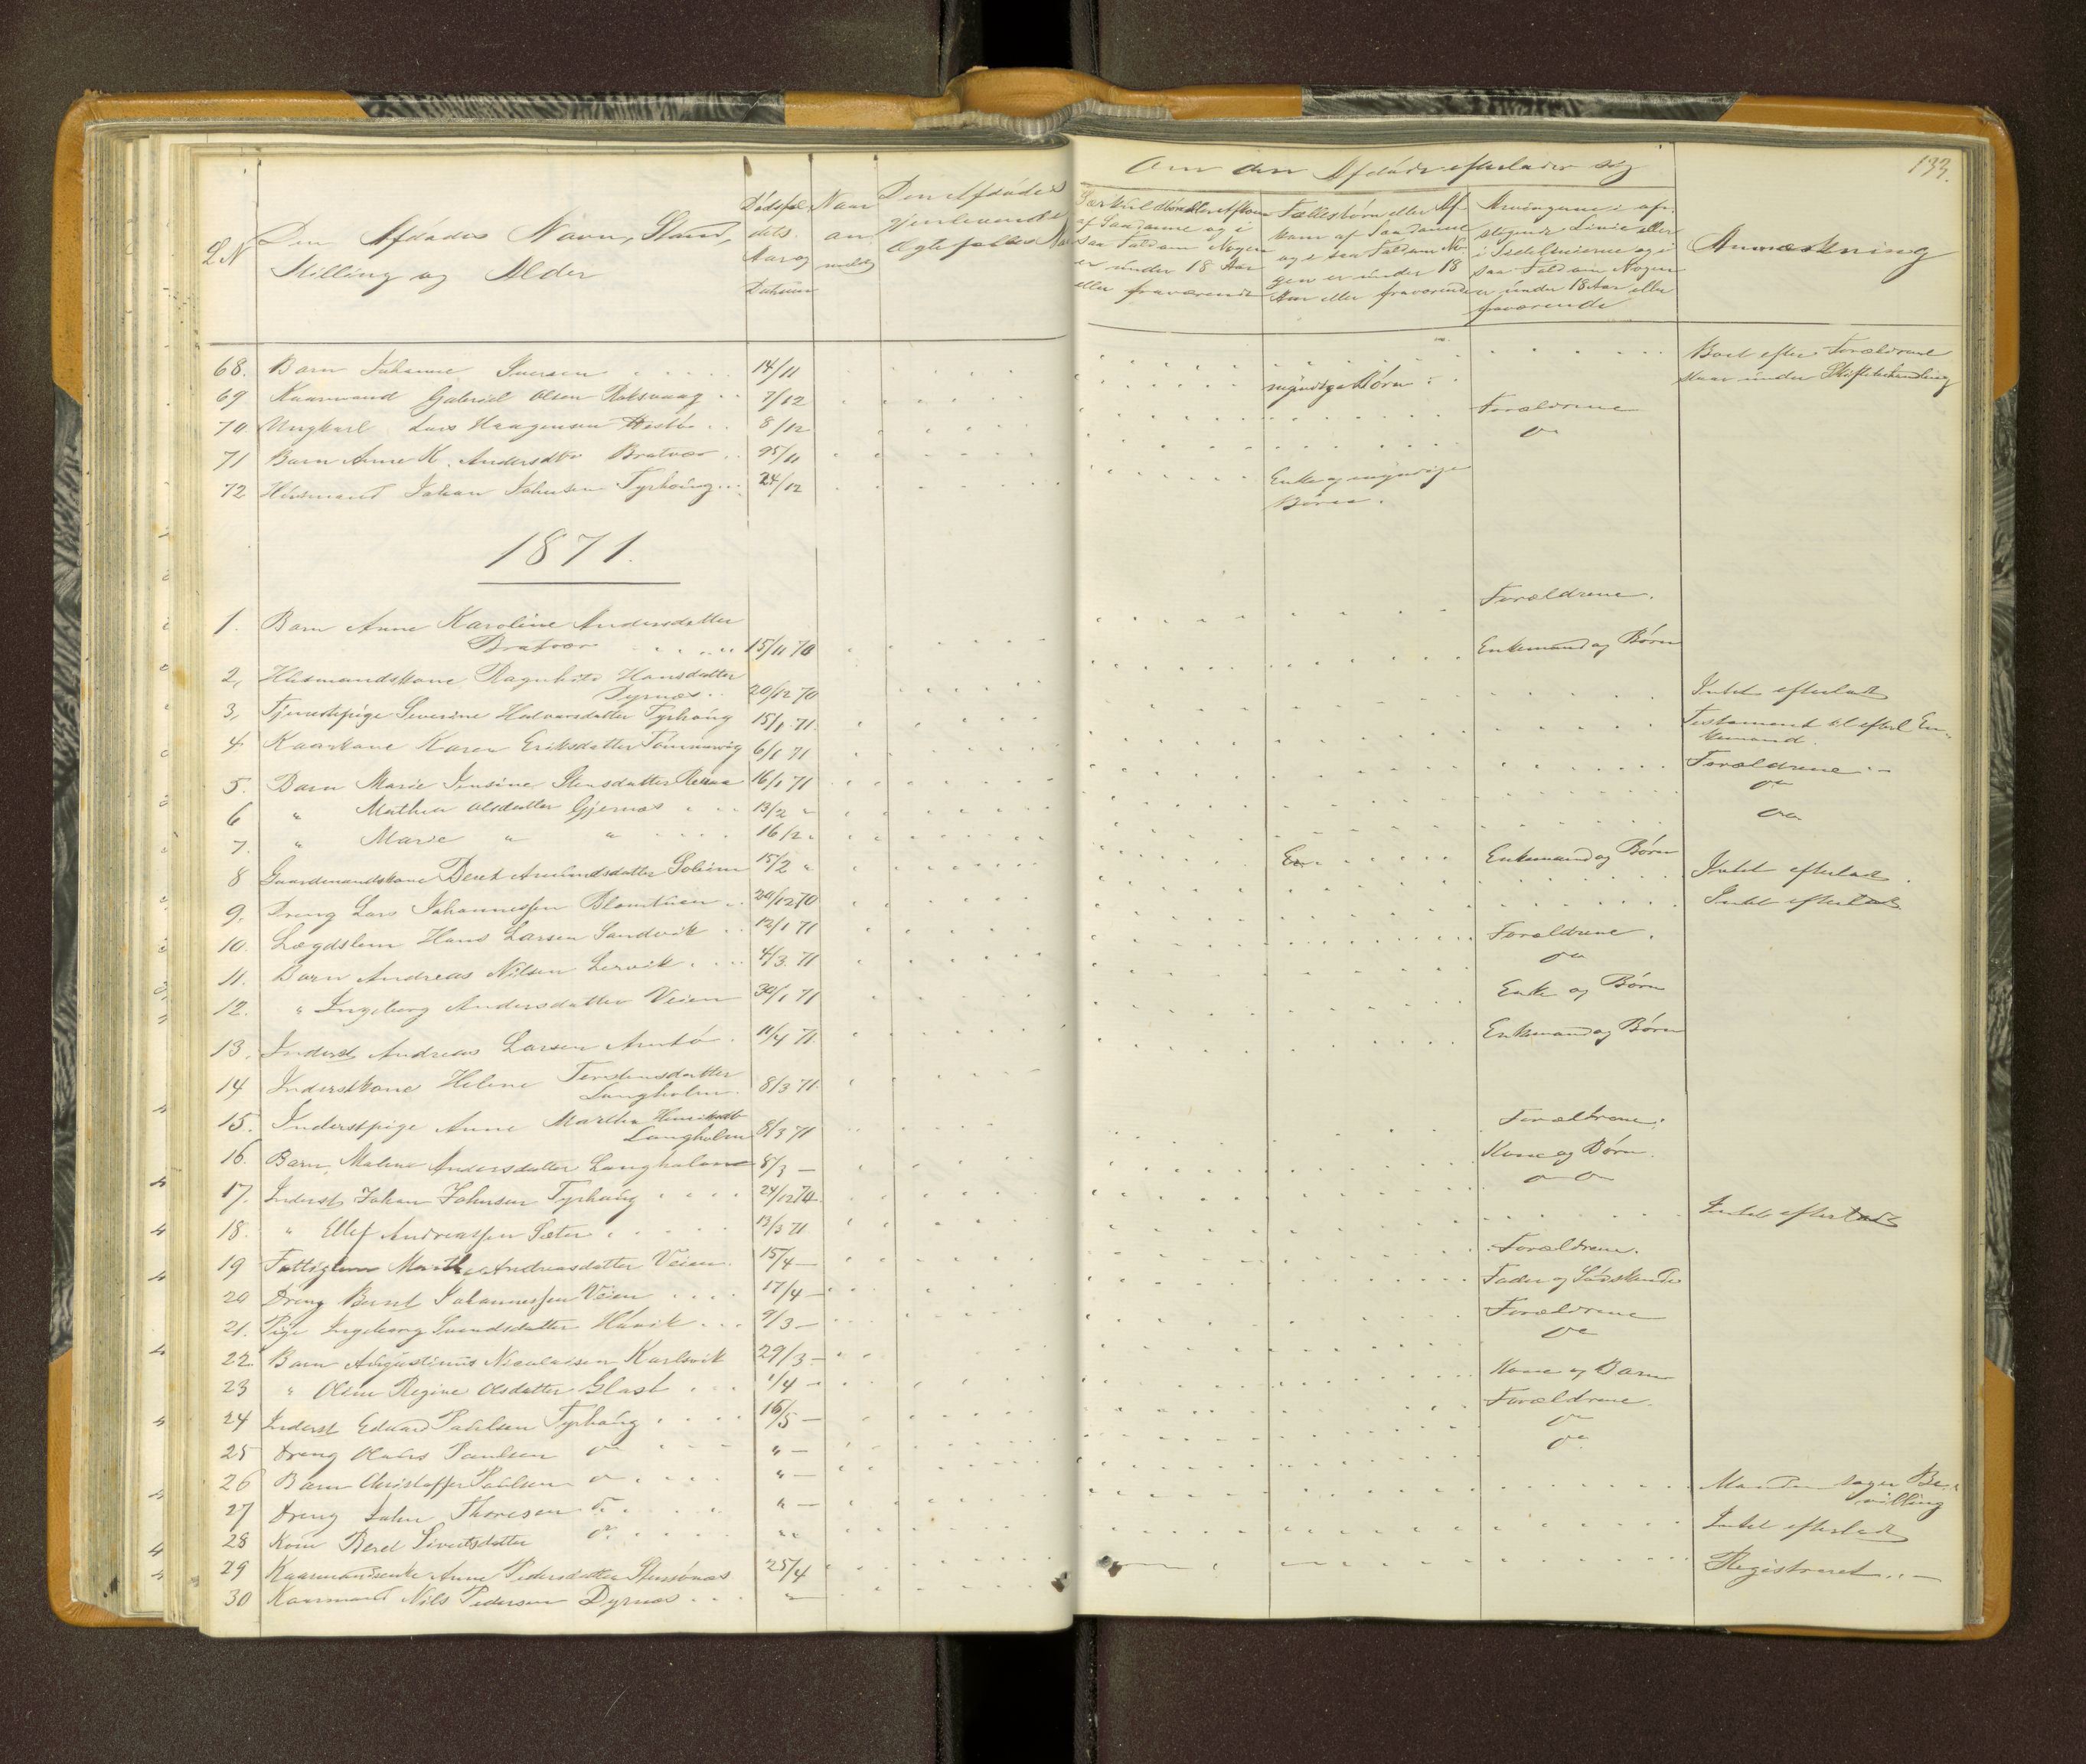 133.
Om den Afdøde efterlader sig
L N
Den Afdødes Navn, Stand,
Stilling og Alder
Dødsfal-
dets
Aar og
Datum
Naar
an-
meldt
Den Afdødes
gjenlevende
Ægtefælles Nav
Særkuldbørn eller Afkom
af Saadanne og i
saa Fald om Nogen
er under 18 Aar
eller fraværende
Fællesbørn eller Af-
kom af Saadanne
og i saa Fald om No-
gen er under 18
Aar eller fraværende
Arvingerne i op-
stigende Linie eller
i Sidelinierne og i
saa Fald om Nogen
er under 18 Aar eller
fraværende
Anmærkning
68. Barn Johanne Iversen 14/11 Boet efter Forældrene
staar under Skiftebehandling
69 Kaarmand Gabriel Olsen Roksvaag 7/12 myndige Børn
70. Ungkarl Lars Haagensen 8/12 Forældrene
71 Barn Anne K. Andersdtr Bratvær 25/11 do
72 Husmand Johan Johnsen Tyrhaug 24/12 Enke og myndige
Børn.
1871.
1. Barn Anne Karoline Andersdatter
Bratvær 15/11 70 Forældrene.
2, Husmandskone Ragnhild Hansdatter
Dyrnæs 20/12 70 Enkemand og Børn
3, Tjenestepige Severine Halvorsdatter Tyrhaug 15/1 71. Intet efterladt
4 Kaarkone Karen Eriksdatter Tømmervig 6/1 71 Testament til efterl En-
kemand.
5. Barn Marie Jensine Stensdatter 16/1 71 Forældrene
6 " Mathea Olsdatter Gjernæs 13/2 " do
7. " Marie " " 16/2 " do
8 Gaardmandskone Beret Amundsdatter Soleim 15/2 " En Enkemand og Børn
9. Dreng Lars Johannessen 20/12 70 Intet efterladt
10. Lægdslem Hans Larsen Sandvik 12/1 71 Intet efterladt
11. Barn Andreas Nilsen Lervik 4/3 71 Forældrene.
12. " Ingeborg Andersdatter Veien 30/1 71 do
13. Inderst Andreas Larsen 11/4 71. Enke og Børn
14 Inderstkone Helene Torstensdatter
Langholm. 8/3 71. Enkemand og Børn
15. Inderstpige Anne Martha Henriksdtr
Langholm 8/3 71
16. Barn Malene Andersdatter Langholm 8/3 — Forældrene.
17. Inderst Johan Johnsen Tyrhaug 24/12 70 Kone og Børn.
18. " Ellef Andreassen Sæter 13/3 71 do do
19 Fattiglem Marthe Andreasdatter Veien 15/4 — Intet efterladt
20 Dreng Bernt Johannessen Veien 17/4 — Forældrene.
21. Pige Ingeborg Svendsdatter Havik 9/3 — Fader og Sødskende
22. Barn Augustinus Nicolaisen Karlsvik 29/3 — Forældrene
23 " Oline Regine Olsdatter Glast 1/4 — do
24 Inderst Edvard Paulsen Tyrhaug 16/5 — Kone og Barn
25 Dreng Paulsen do " — Forældrene.
26 Barn Christoffer Paulsen do " — do
27 Dreng John Thoresen do " — do
28 Kone Beret Sivertsdatter do " Manden søger Be-
villing
29 Kaarmandsenke Anne Pedersdatter 25/4 Intet efterladt
30 Kaarmand Nils Pedersen Dyrnæs " Registreret